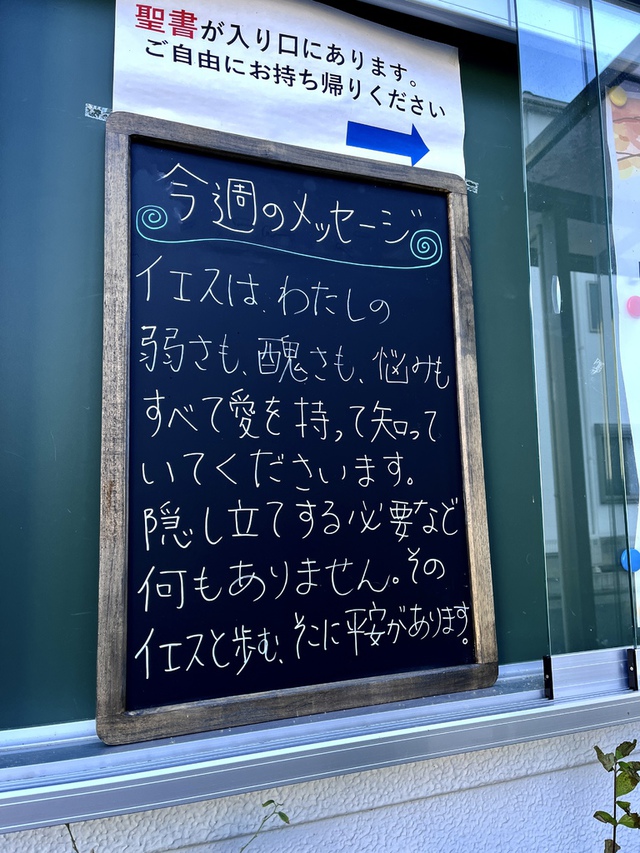 聖書が入り口にあります。
ご自由にお持ち帰りください
今週のメッセージ
イエスは、わたしの
弱さも、醜さも、悩みも
すべて愛を持って知って
いてくださいます。
隠し立てする必要など
何もありません。その
イエスと歩む、そこに平安があります。